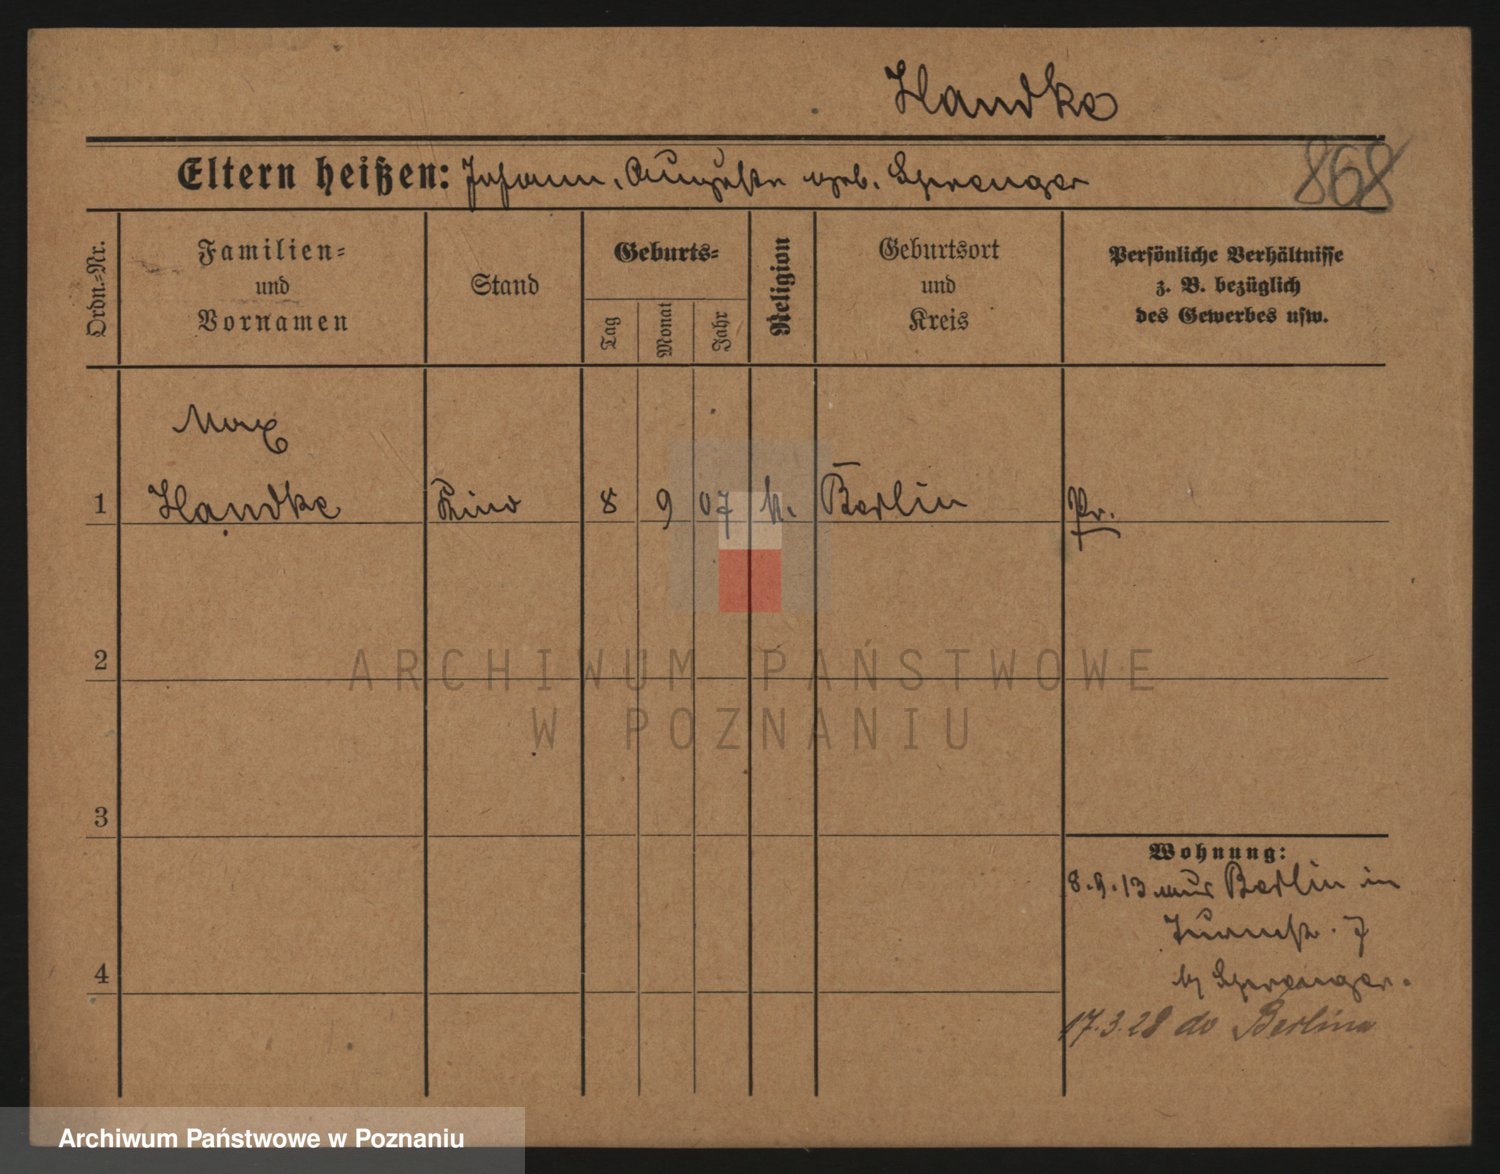 Handke
Eltern heißen: Johann, Auguste geb. Sprenger
868
Ordn.-Nr.
Familien-
und
Vornamen
Stand
Geburts-
Tag
Monat
Jahr
Religion
Geburtsort
und
Kreis
Persönliche Verhältnisse
z. B. bezüglich
des Gewerbes usw.
Max
1 Handke Kind 8 9 07 k. Berlin Pr.
2
ARCHIWUM PAŃSTWOWE
W POZNANIU
3
Wohnung:
8.9.13 aus Berlin in
Turmstr. 7
by Sprenger.
4
17.3.28 do Berlina
Archiwum Państwowe w Poznaniu